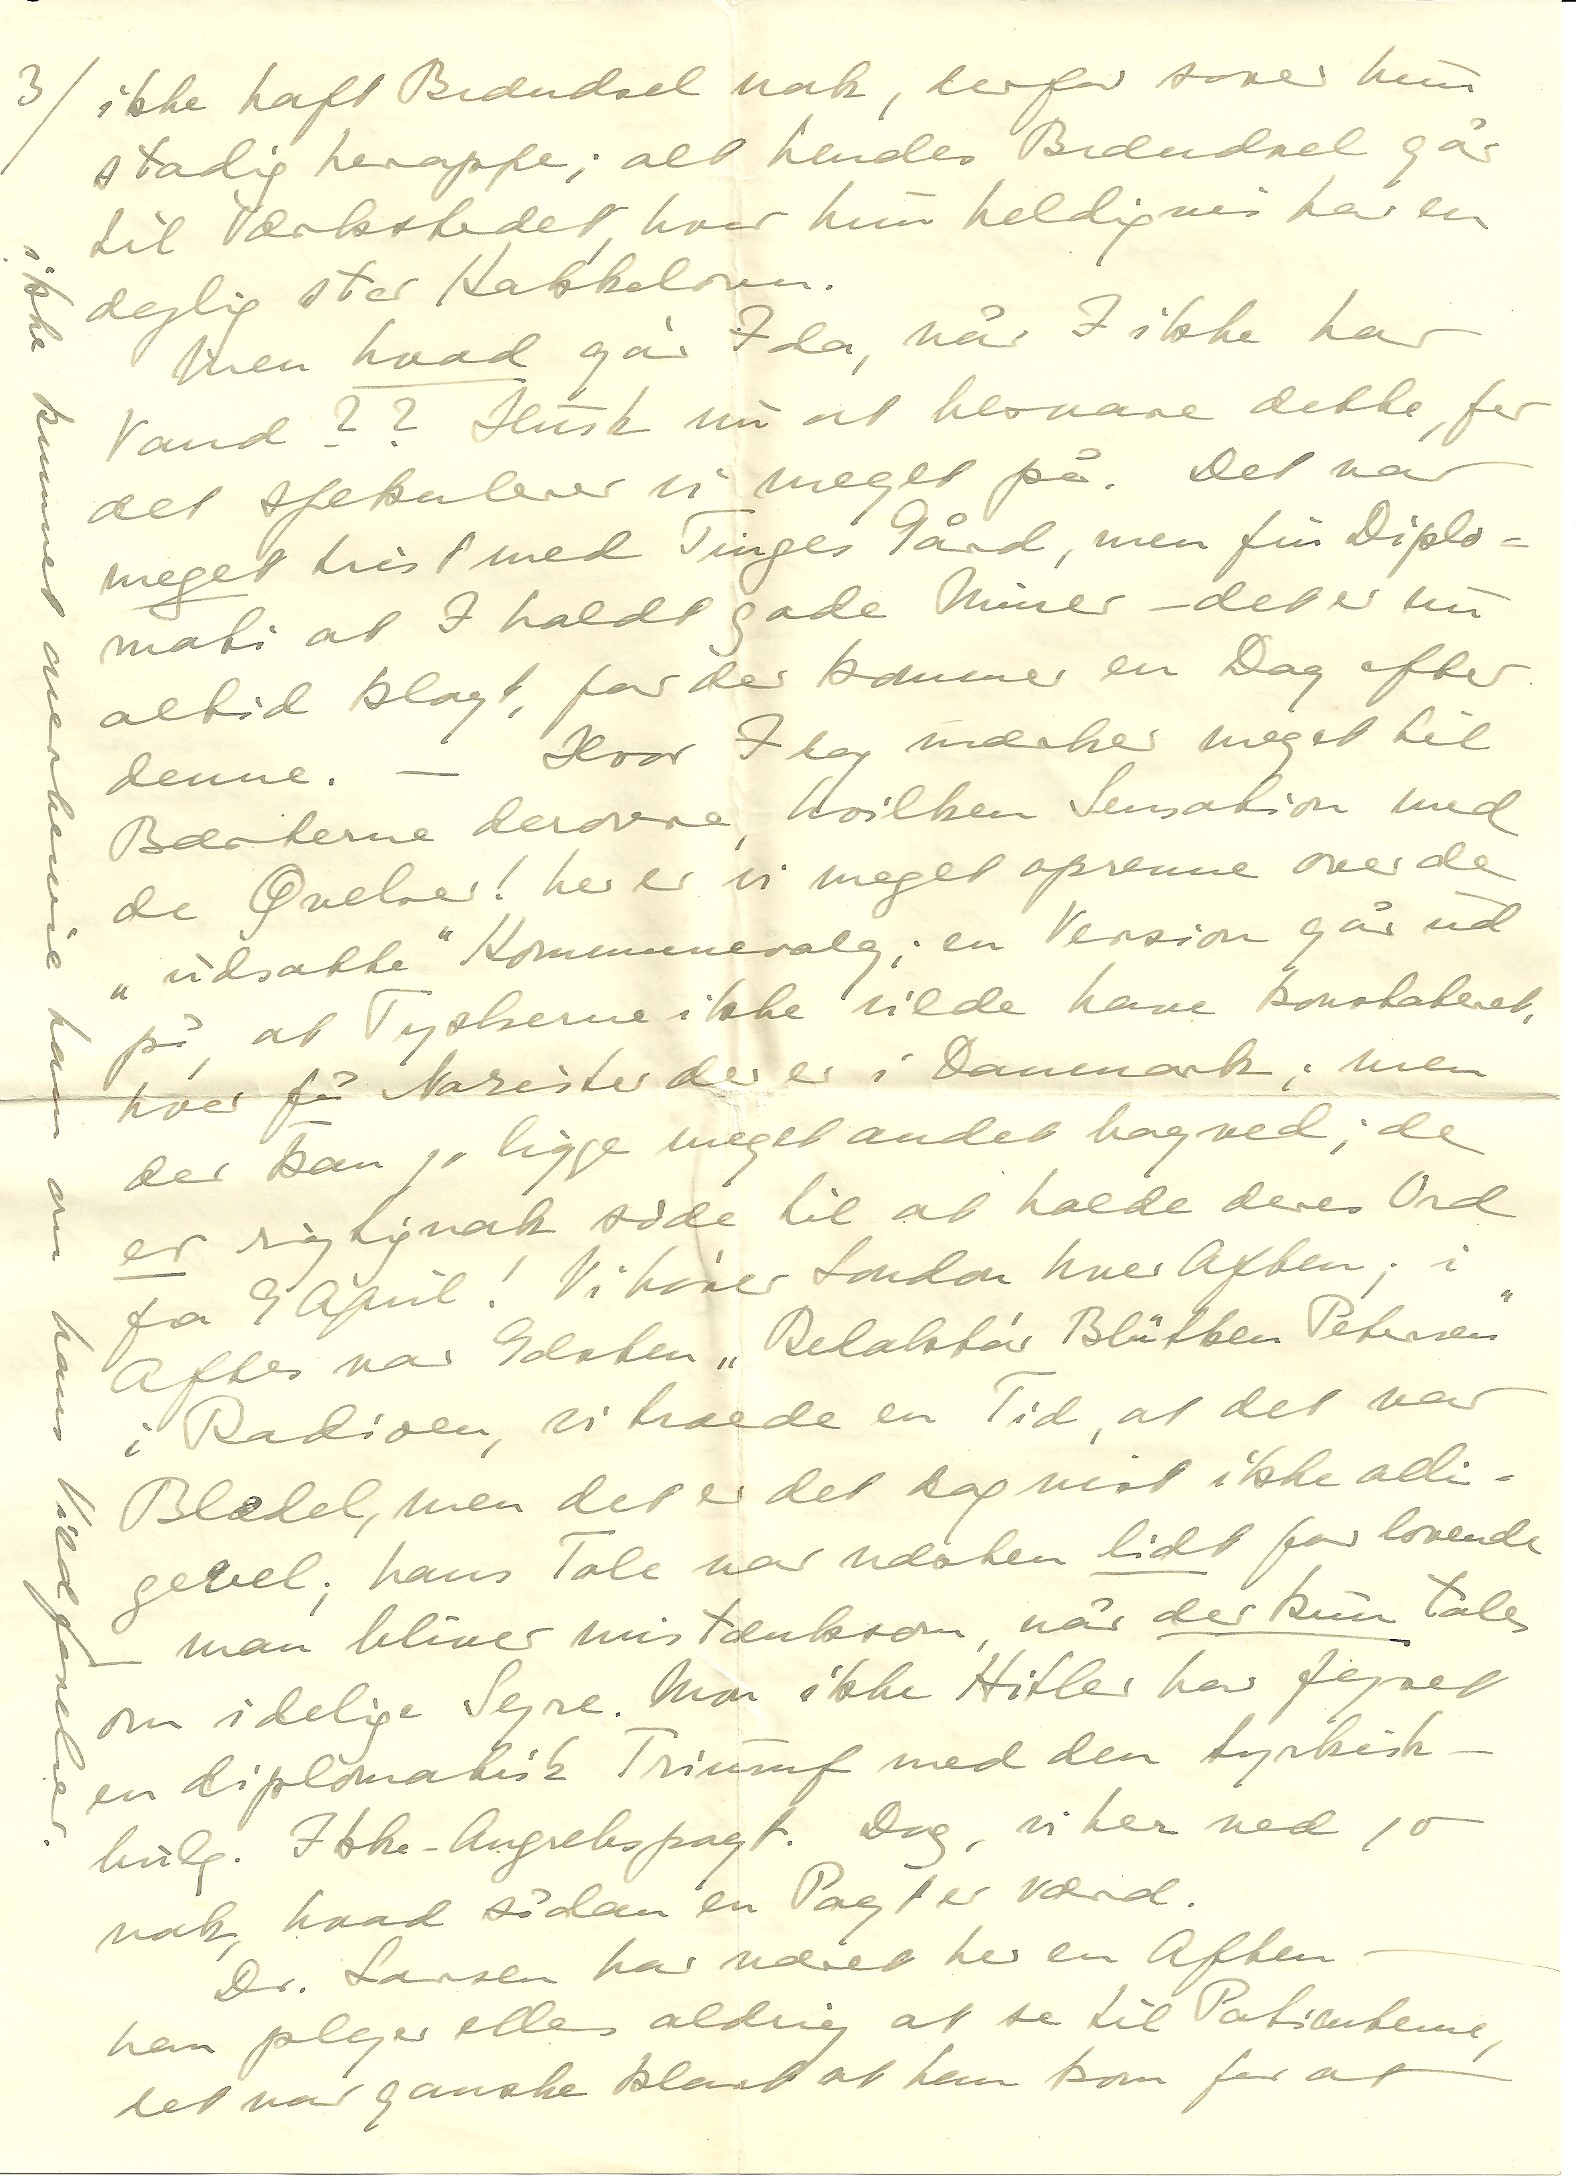 3/ ikke haft Brændsel nok, derfor sover hun
stadig heroppe; alt hendes Brændsel går
til Værkstedet, hvor hun heldigvis har en
dejlig stor Kakkelovn.
Men hvad gør I da, når I ikke har
Vand ?? Husk nu at besvare dette, for
det spekulerer vi meget på. Det var
meget trist med Tinges Gård, men fin Diplo-
mati at I holdt gode Miner – det er nu
altid klogt, for der kommer en Dag efter
denne. — Hvor I dog mærker meget til
Bæsterne derovre, hvilken Sensation med
de Øvelser! her er vi meget oprevne over de
"udsatte" Kommunevalg; en Version går ud
på, at Tyskerne ikke vilde have konstateret,
hvor få Nazister der er i Danmark; men
der kan jo ligge meget andet bagved; de
er rigtignok søde til at holde deres Ord
fra 9 April! Vi hører London hver Aften; i
Aftes var Gæsten "Redaktør Blütken Petersen"
i Radioen, vi troede en Tid, at det var
Blædel, men det er det dog vist ikke alli-
gevel; hans Tale var næsten lidt for lovende
– man bliver mistænksom, når der kun tales
om idelige Sejre. Mon ikke Hitler har fejret
en diplomatisk Triumf med den tyrkisk-
bulg. Ikke-Angrebspagt. Dog, vi her ved jo
nok, hvad sådan en Pagt er værd.
Dr. Larsen har været her en Aften —
han plejer ellers aldrig at se til Patienterne,
det var ganske klart at han kom for at
ikke kunnet overbevise ham om hans Vildfarelser.